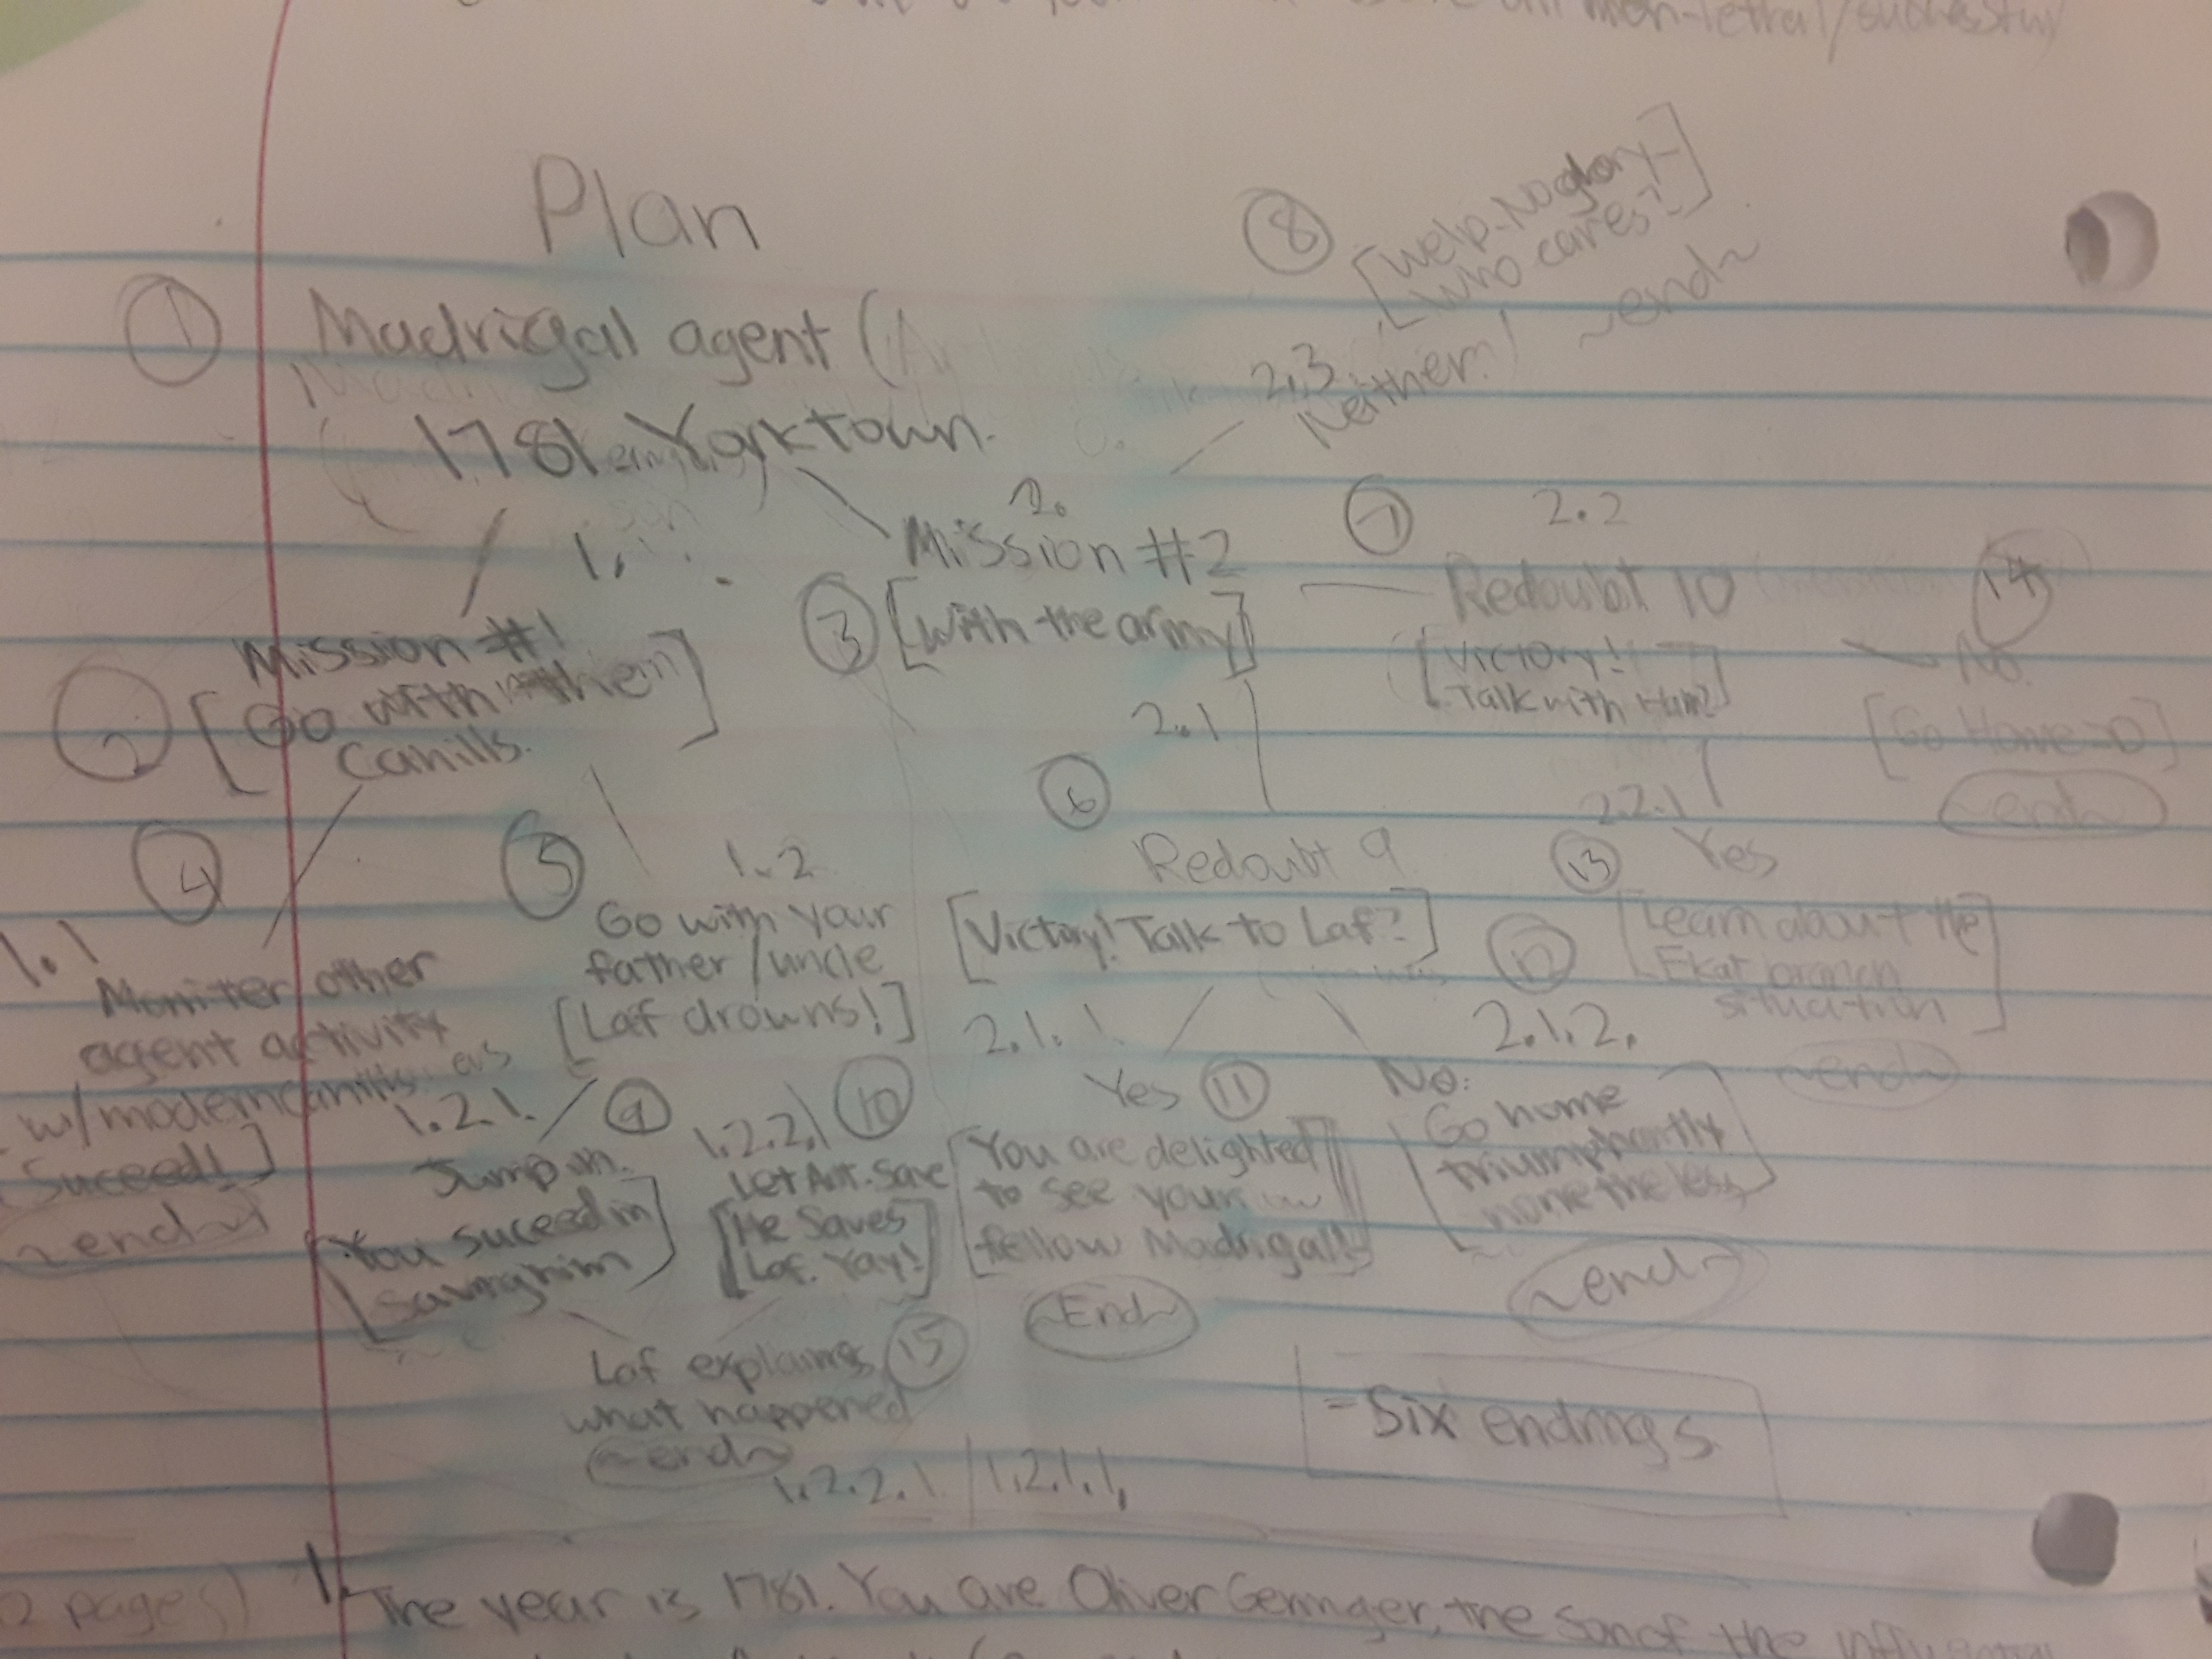 non-lethal/
Plan
8
[Welp. No glory-
who cares?]
~end~
1 Madrigal agent (
2.3
Neither!
1781 Yorktown.
1.
2.
Mission #2
3 [With the army]
7 2.2
Redoubt 10
[Victory!
Talk with Ham?]
14
No.
[Go Home =D]
~end~
Mission #1
2 [Go with
Cahills.
2.1
6
Redoubt 9
[Victory! Talk to Laf?]
2.2.1
13 Yes
[Learn about the
Ekat branch
situation]
~end~
4
1.1
Moniter other
agent activity
w/modern Cahills.
[Suceed!]
~end~
5 1.2
Go with your
father/uncle
[Laf drowns!]
1.2.1. 9
Jump in.
[You suceed in
saving him]
1.2.2. 10
Let Art. save
[He saves
Laf. Yay!]
2.1.1
Yes 11
[You are delighted
to see your
fellow Madrigal!]
~End~
12
2.1.2.
No:
[Go home
triumphantly
none the less]
~end~
Laf explains 15
what happened
~end~
1.2.2.1 / 1.2.1.1.
- Six endings
2 pages) 1. The year is 1781. You are Oliver Geringer, the son of the influential